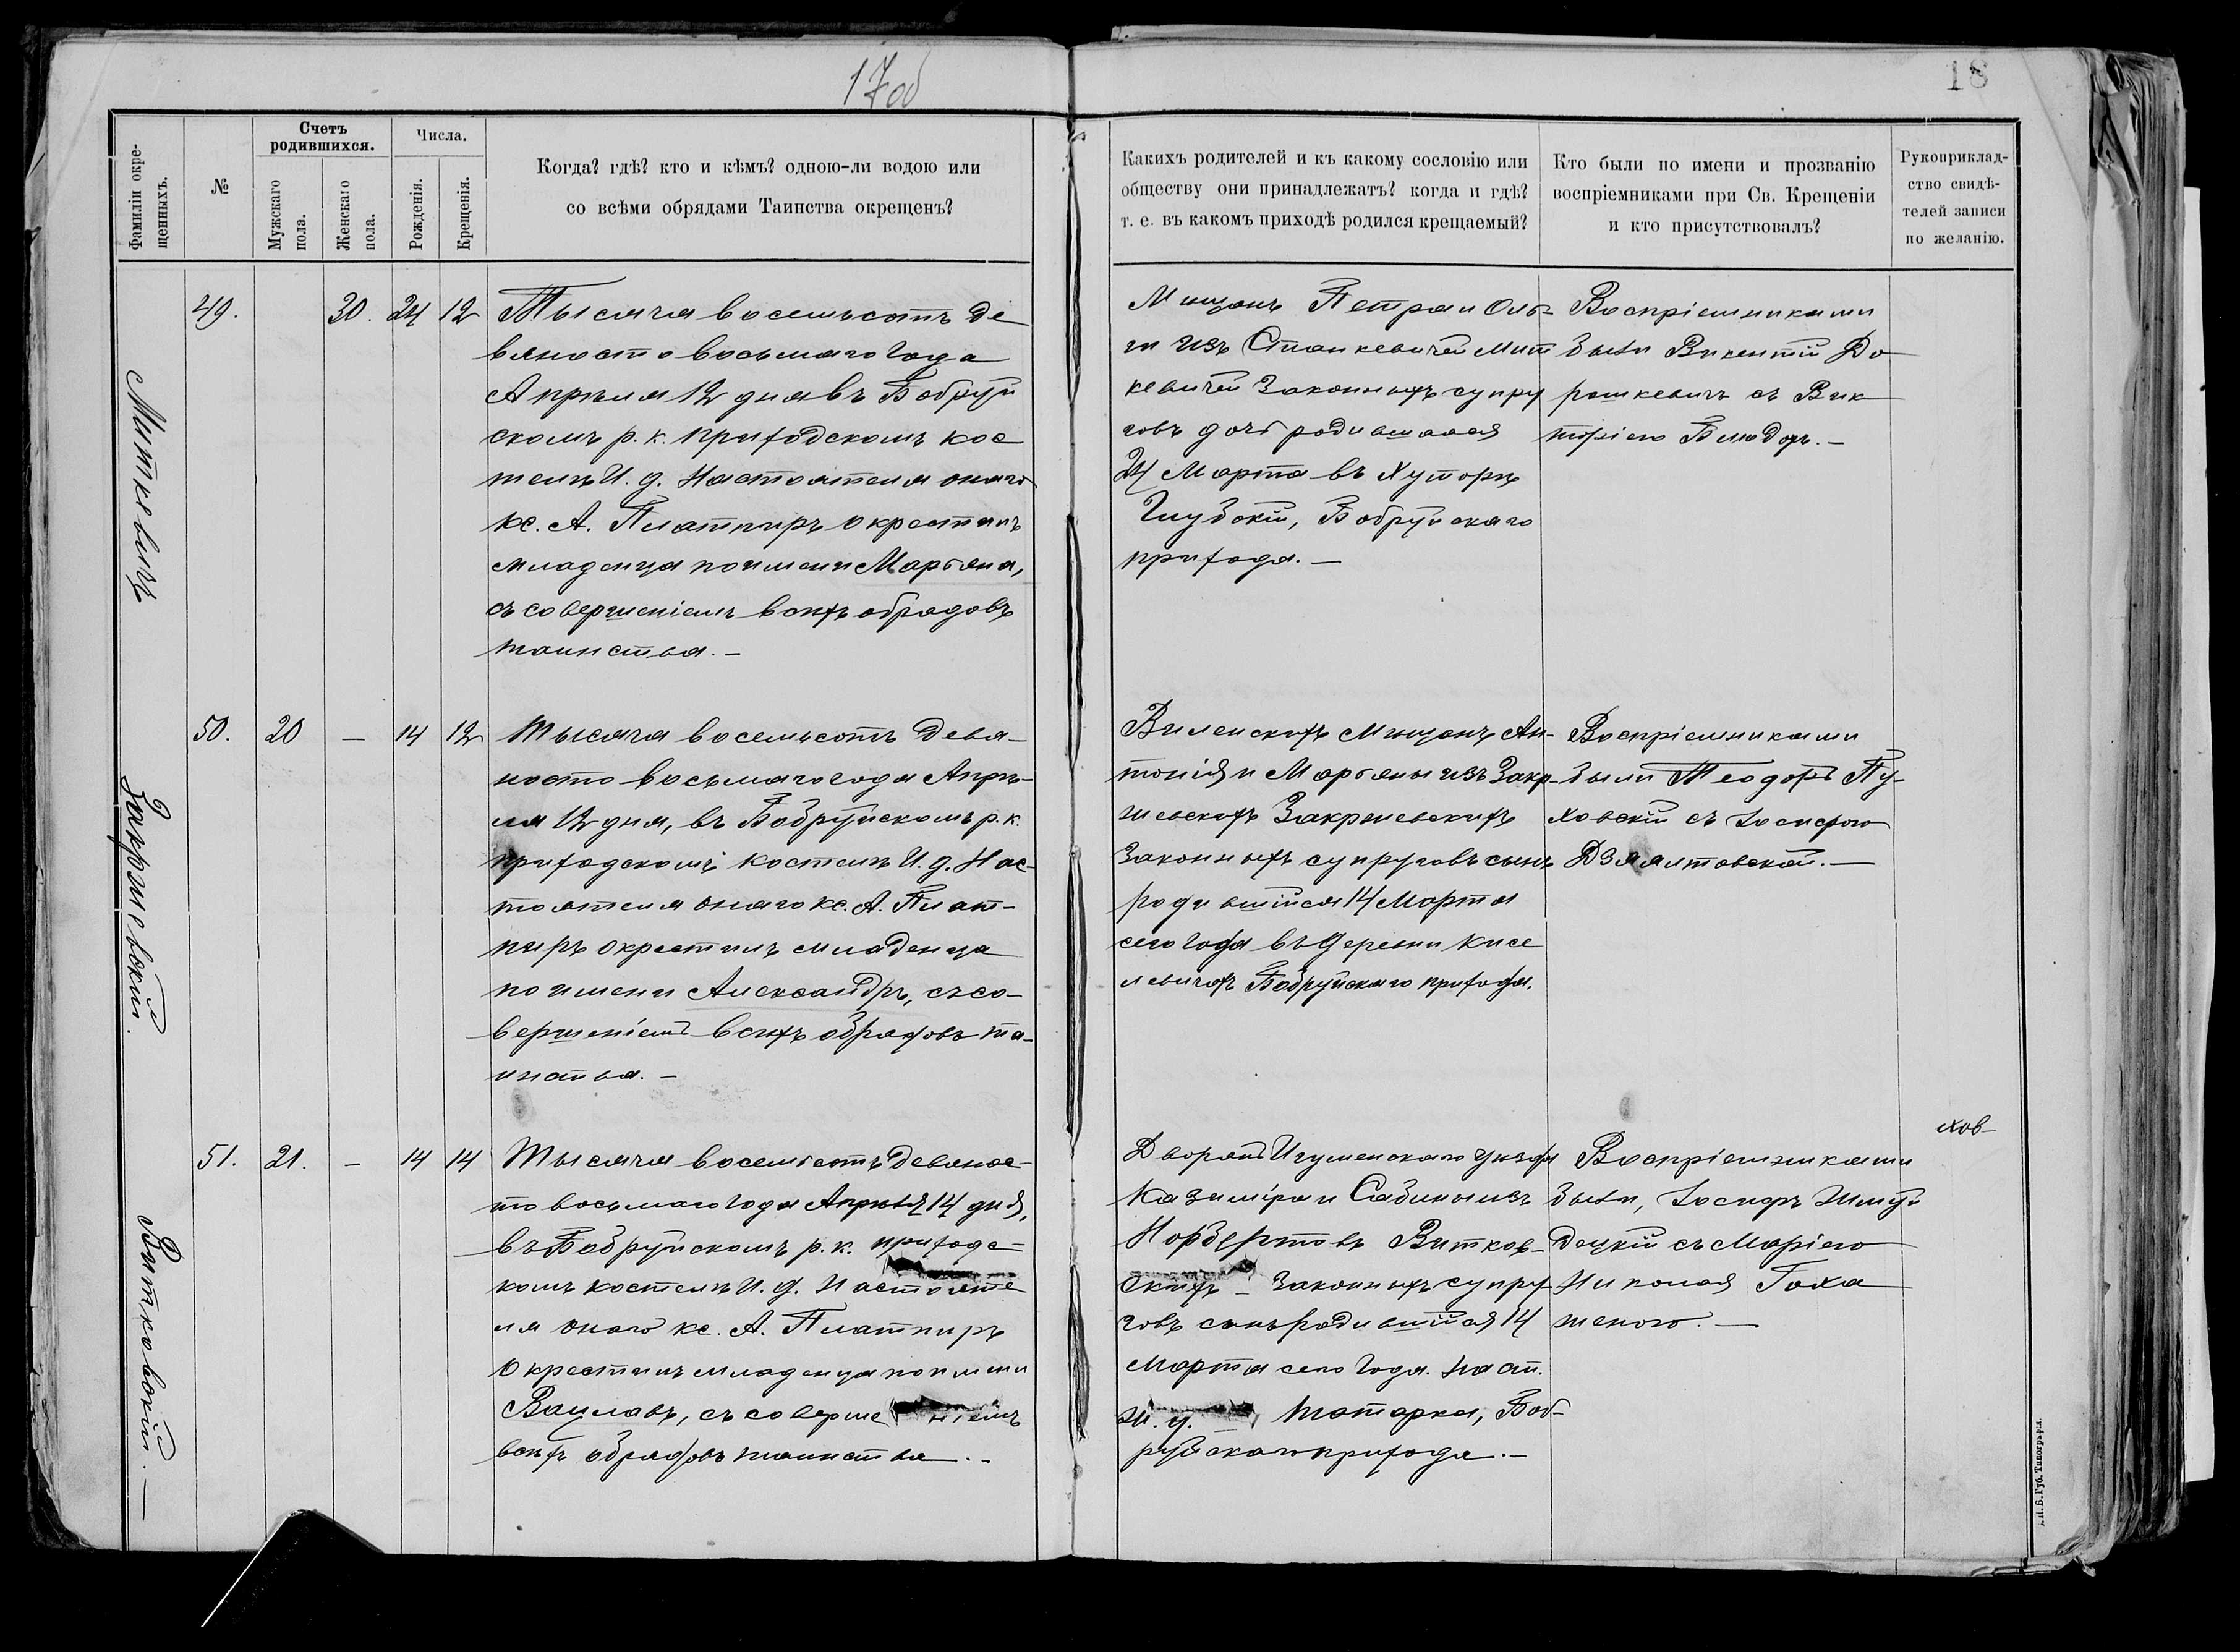 17об
18
Фамиліи окре-
щенныхъ.
№
Счетъ
родившихся.
Мужскаго
пола.
Женскаго
пола.
Числа.
Рожденія.
Крещенія.
Когда? гдѣ? кто и кѣмъ? одною-ли водою или
со всѣми обрядами Таинства окрещенъ?
Какихъ родителей и къ какому сословію или
обществу они принадлежатъ? когда и гдѣ?
т. е. въ какомъ приходѣ родился крещаемый?
Кто были по имени и прозванію
воспріемниками при Св. Крещеніи
и кто присутствовалъ?
Рукоприклад-
ство свидѣ-
телей записи
по желанію.
Миткевичъ
49. 30. 24 12
Тысяча восемьсотъ де
вяносто восьмаго года
Апрѣля 12 дня въ Бобруй
скомъ р. к. приходскомъ кос
телѣ И. д. Настоятеля онаго
кс. А. Платпиръ окрестилъ
младенца по имени Марьяна,
съ совершеніемъ всѣхъ обрядовъ
таинства. —
Мѣщанъ Петра и Оль-
ги изъ Станкевичей Мит
кевичей законныхъ супру
говъ дочь родившаяся
24 Марта въ Хуторѣ
Глубокій, Бобруйскаго
прихода. —
Воспріемниками
были Викентій До
рошкевичъ съ Вик
торіею
Закржевскій.
50. 20 — 14 12
Тысяча восемьсотъ девя-
носто восьмаго года Апрѣ-
ля 12 дня, въ Бобруйскомъ р. к.
приходскомъ костелѣ И. д. Нас-
тоятеля онаго кс. А. Плат-
пиръ окрестилъ младенца
по имени Александръ, съ со-
вершеніемъ всѣхъ обрядовъ та-
инства. —
Виленскихъ Мѣщанъ Ан-
тонія и Марьяны изъ Закр-
жевскихъ Закржевскихъ
законныхъ супруговъ сынъ
родившійся 14 Марта
сего года въ деревни Кисе
левичахъ Бобруйскаго прихода.
Воспріемниками
были Теодоръ Пу-
ховскій съ Іосифою
Дзялтовской. —
Витковскій. —
51. 21. — 14 14
Тысяча восемьсотъ девянос-
то восьмаго года Апрѣля 14 дня,
въ Бобруйскомъ р. к. приходс-
комъ костелѣ И. д. Настояте
ля онаго кс. А. Платпиръ
окрестилъ младенца по имени
Вацлавъ, съ соверше ніемъ
всѣхъ обрядовъ таинства. —
Дворянъ Игуменскаго уѣзда
Казиміра и Сабины изъ
Норбертовъ Витков-
скихъ — законныхъ супру
говъ сынъ родившійся 14
Марта сего года. на ст.
ж. д. Татарка, Боб-
руйскаго прихода. —
Воспріемниками
были, Іосифъ
децкій съ Маріею
Николая Гоха
женою. —
хов-